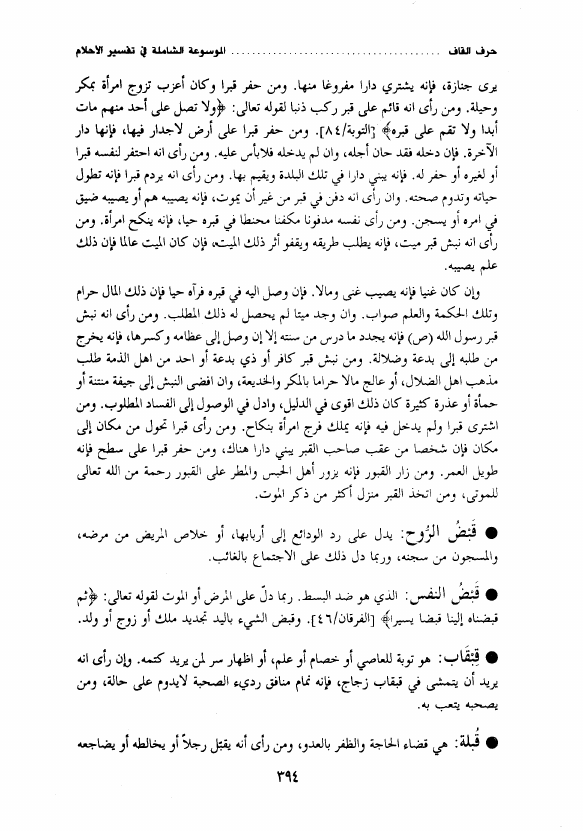 حرف القاف ........................................ الموسوعة الشاملة في تفسير الأحلام
يرى جنازة، فإنه يشتري دارا مفروغا منها. ومن حفر قبرا وكان أعزب تزوج امرأة بمكر
وحيلة. ومن رأى انه قائم على قبر ركب ذنبا لقوله تعالى: ﴿ولا تصل على أحد منهم مات
أبدا ولا تقم على قبره﴾ [التوبة/٨٤]. ومن حفر قبرا على أرض لاجدار فيها، فإنها دار
الآخرة. فإن دخله فقد حان أجله، وان لم يدخله فلابأس عليه. ومن رأى انه احتفر لنفسه قبرا
أو لغيره أو حفر له. فإنه يبني دارا في تلك البلدة ويقيم بها. ومن رأى انه يردم قبرا فإنه تطول
حياته وتدوم صحته. وان رأى انه دفن في قبر من غير أن يموت، فإنه يصيبه هم أو يصيبه ضيق
في امره أو يسجن. ومن رأى نفسه مدفونا مكفنا محنطا في قبره حيا، فإنه ينكح امرأة. ومن
رأى انه نبش قبر ميت، فإنه يطلب طريقه ويقفو أثر ذلك الميت، فإن كان الميت عالما فإن ذلك
علم يصيبه.
وإن كان غنيا فإنه يصيب غنى ومالا. فإن وصل اليه في قبره فرآه حيا فإن ذلك المال حرام
وتلك الحكمة والعلم صواب. وان وجد ميتا لم يحصل له ذلك المطلب. ومن رأى انه نبش
قبر رسول الله (ص) فإنه يجدد ما درس من سنته إلا إن وصل إلى عظامه وكسرها، فإنه يخرج
من طلبه إلى بدعة وضلالة. ومن نبش قبر كافر أو ذي بدعة أو احد من اهل الذمة طلب
مذهب اهل الضلال، أو عالج مالا حراما بالمكر والخديعة، وان افضى النبش إلى جيفة منتنة أو
حمأة أو عذرة كثيرة كان ذلك اقوى في الدليل، وادل في الوصول إلى الفساد المطلوب. ومن
اشترى قبرا ولم يدخل فيه فإنه يملك فرج امرأة بنكاح. ومن رأى قبرا تحول من مكان إلى
مكان فإن شخصا من عقب صاحب القبر يبني دارا هناك، ومن حفر قبرا على سطح فإنه
طويل العمر. ومن زار القبور فإنه يزور أهل الحبس والمطر على القبور رحمة من الله تعالى
للموتى، ومن اتخذ القبر منزل أكثر من ذكر الموت.
● قَبْضُ الرُّوح: يدل على رد الودائع إلى أربابها، أو خلاص المريض من مرضه،
والمسجون من سجنه، وربما دل ذلك على الاجتماع بالغائب.
● قَبْضُ النفس: الذي هو ضد البسط. ربما دلّ على المرض أو الموت لقوله تعالى: ﴿ثم
قبضناه إلينا قبضا يسيرا﴾ [الفرقان/٤٦]. وقبض الشيء باليد تجديد ملك أو زوج أو ولد.
● قِبْقَاب: هو توبة للعاصي أو خصام أو علم، أو اظهار سر لمن يريد كتمه. وإن رأى انه
يريد أن يتمشى في قبقاب زجاج، فإنه نمام منافق رديء الصحبة لايدوم على حالة، ومن
يصحبه يتعب به.
● قُبلة: هي قضاء الحاجة والظفر بالعدو، ومن رأى أنه يقبّل رجلاً أو يخالطه أو يضاجعه
٣٩٤